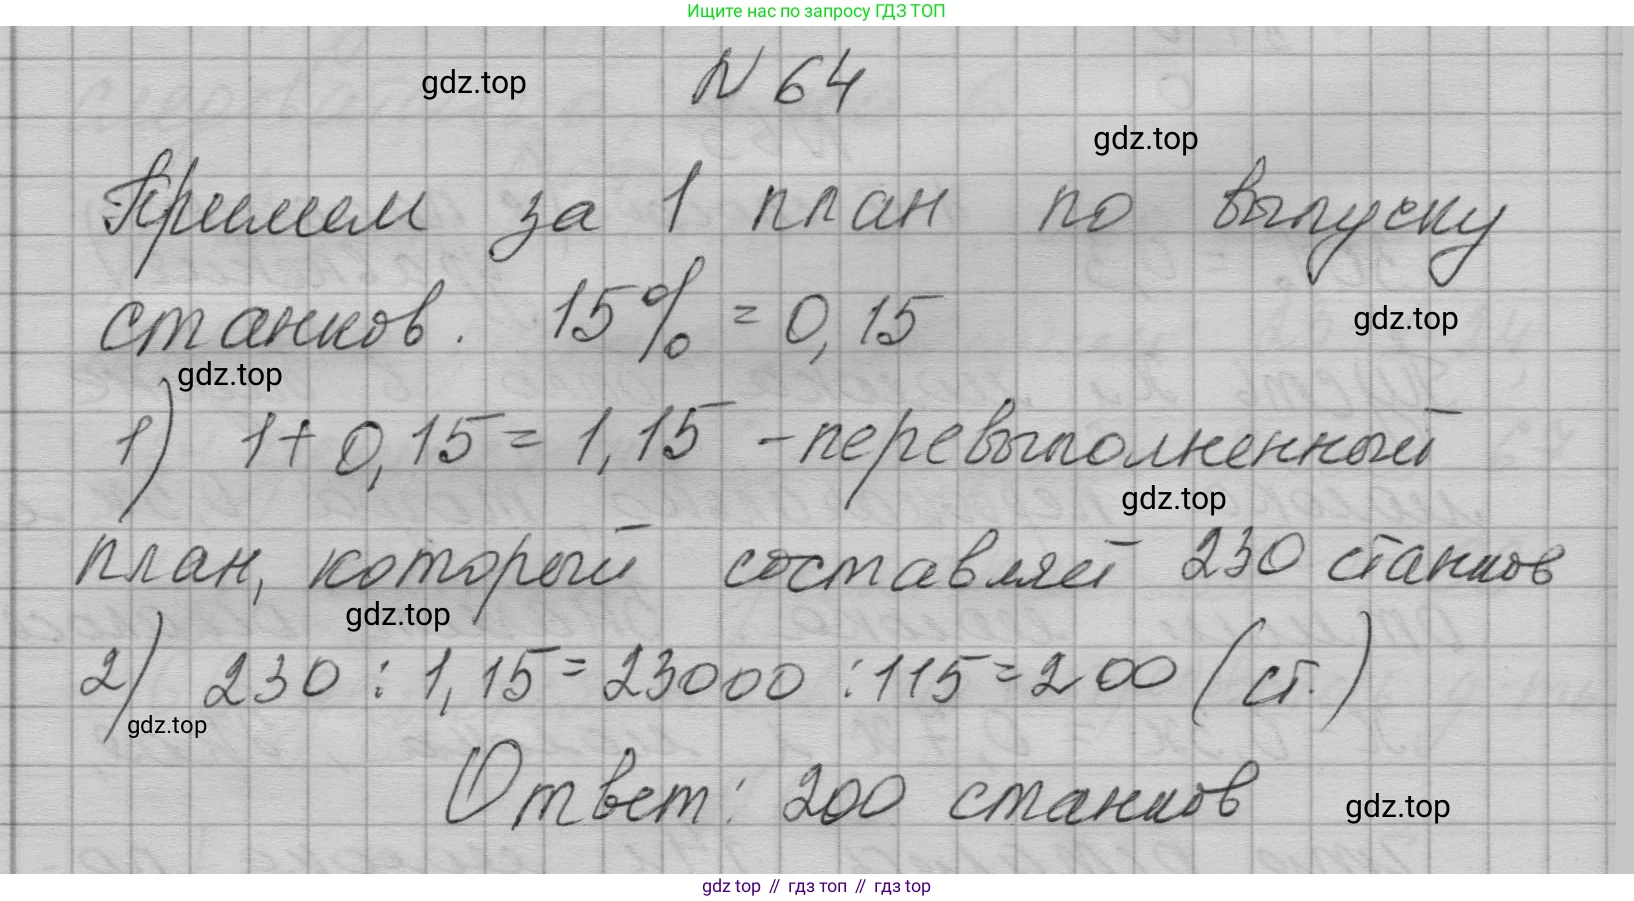 Ищите нас по запросу ГДЗ ТОП
N 64
gdz.top
gdz.top
Примем за 1 план по выпуску
станков. 15% = 0,15
gdz.top
gdz.top
1) 1+0,15=1,15 - перевыполненный
gdz.top
план, который составляет 230 станков
gdz.top
2) 230 : 1,15=23000 :115=200 (ст.)
gdz.top
Ответ: 200 станков
gdz.top
gdz top // гдз топ // гдз top